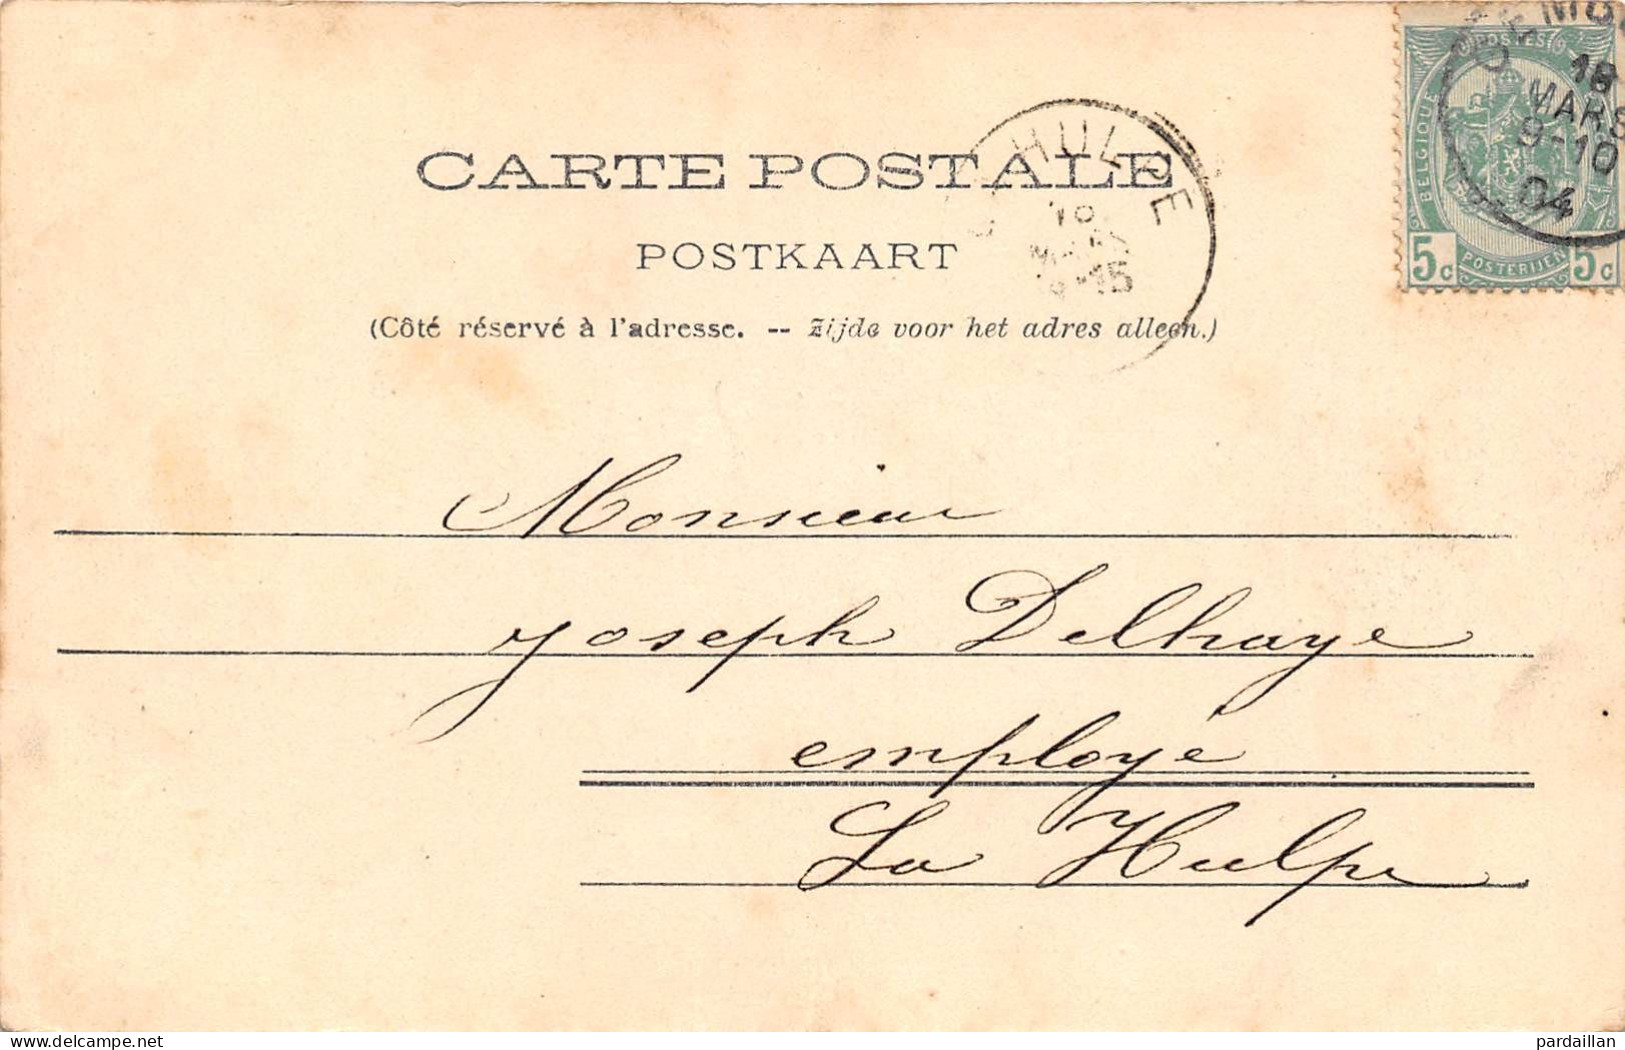 POSTES
BELGIQUE
18
MARS
9-10
04
5c POSTERIJEN 5c
HULPE
18
MARS
15
CARTE POSTALE
POSTKAART
(Côté réservé à l'adresse. -- Zijde voor het adres alleen.)
Monsieur
Joseph Delhaye
employé
La Hulpe
delcampe.net
pardaillan